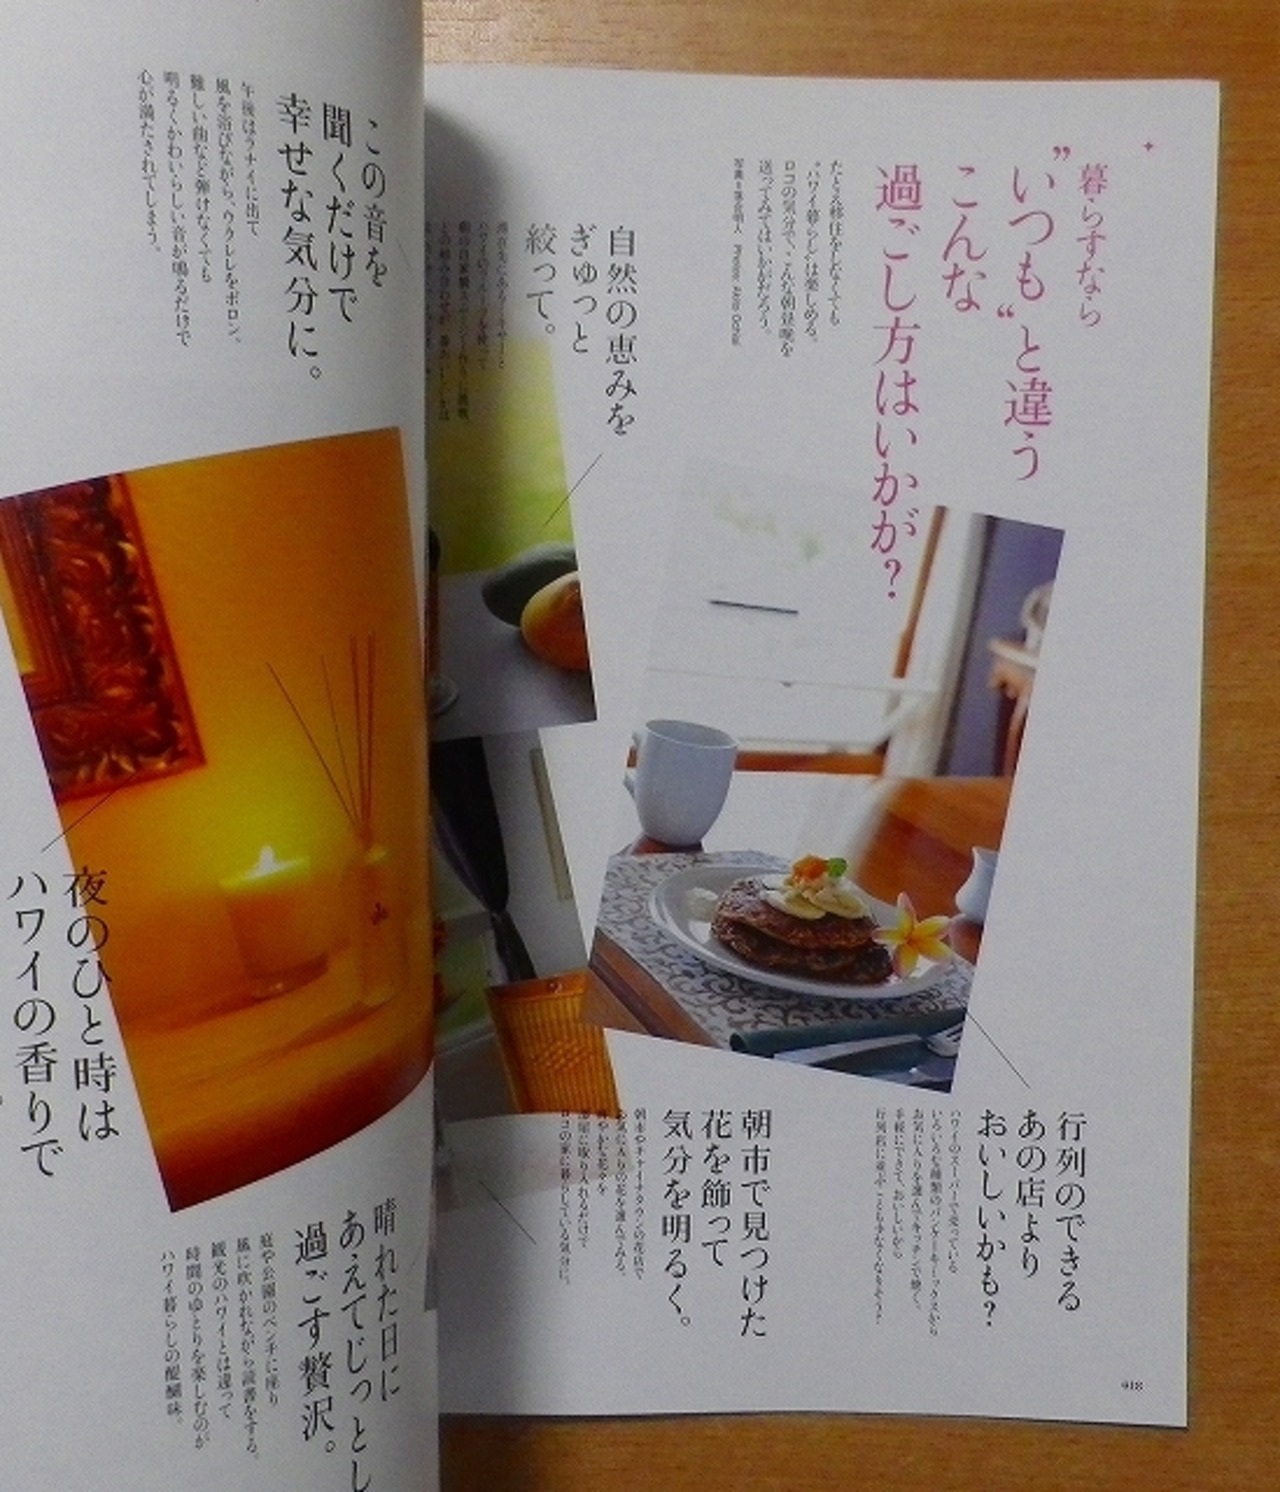 暮らすなら
”いつも“と違う
こんな
過ごし方はいかが?
たとえ移住をしなくても
"ハワイ暮らし"は楽しめる。
ロコの気分で、こんな朝昼晩を
送ってみてはいかがだろう。
行列のできる
あの店より
おいしいかも?
ハワイのスーパーで売っている
いろいろな種類のパンケーキミックスから
お気に入りを選んでキッチンで焼く。
手軽にできて、おいしいから
自然の恵みを
ぎゅっと
絞って。
朝市で見つけた
花を飾って
気分を明るく。
朝市やチャイナタウンの花店で
お気に入りの花を選んでみる。
部屋に取り入れるだけで
ロコの家に暮らしている気分に。
018
この音を
聞くだけで
幸せな気分に。
午後はラナイに出て
風を浴びながら、ウクレレをポロン。
難しい曲など弾けなくても
明るくかわいらしい音が鳴るだけで
心が満たされてしまう。
夜のひと時は
ハワイの香りで
晴れた日に
あえてじっとし
過ごす贅沢。
庭や公園のベンチに座り
風に吹かれながら読書をする。
観光のハワイとは違って
時間のゆとりを楽しむのが
ハワイ暮らしの醍醐味。